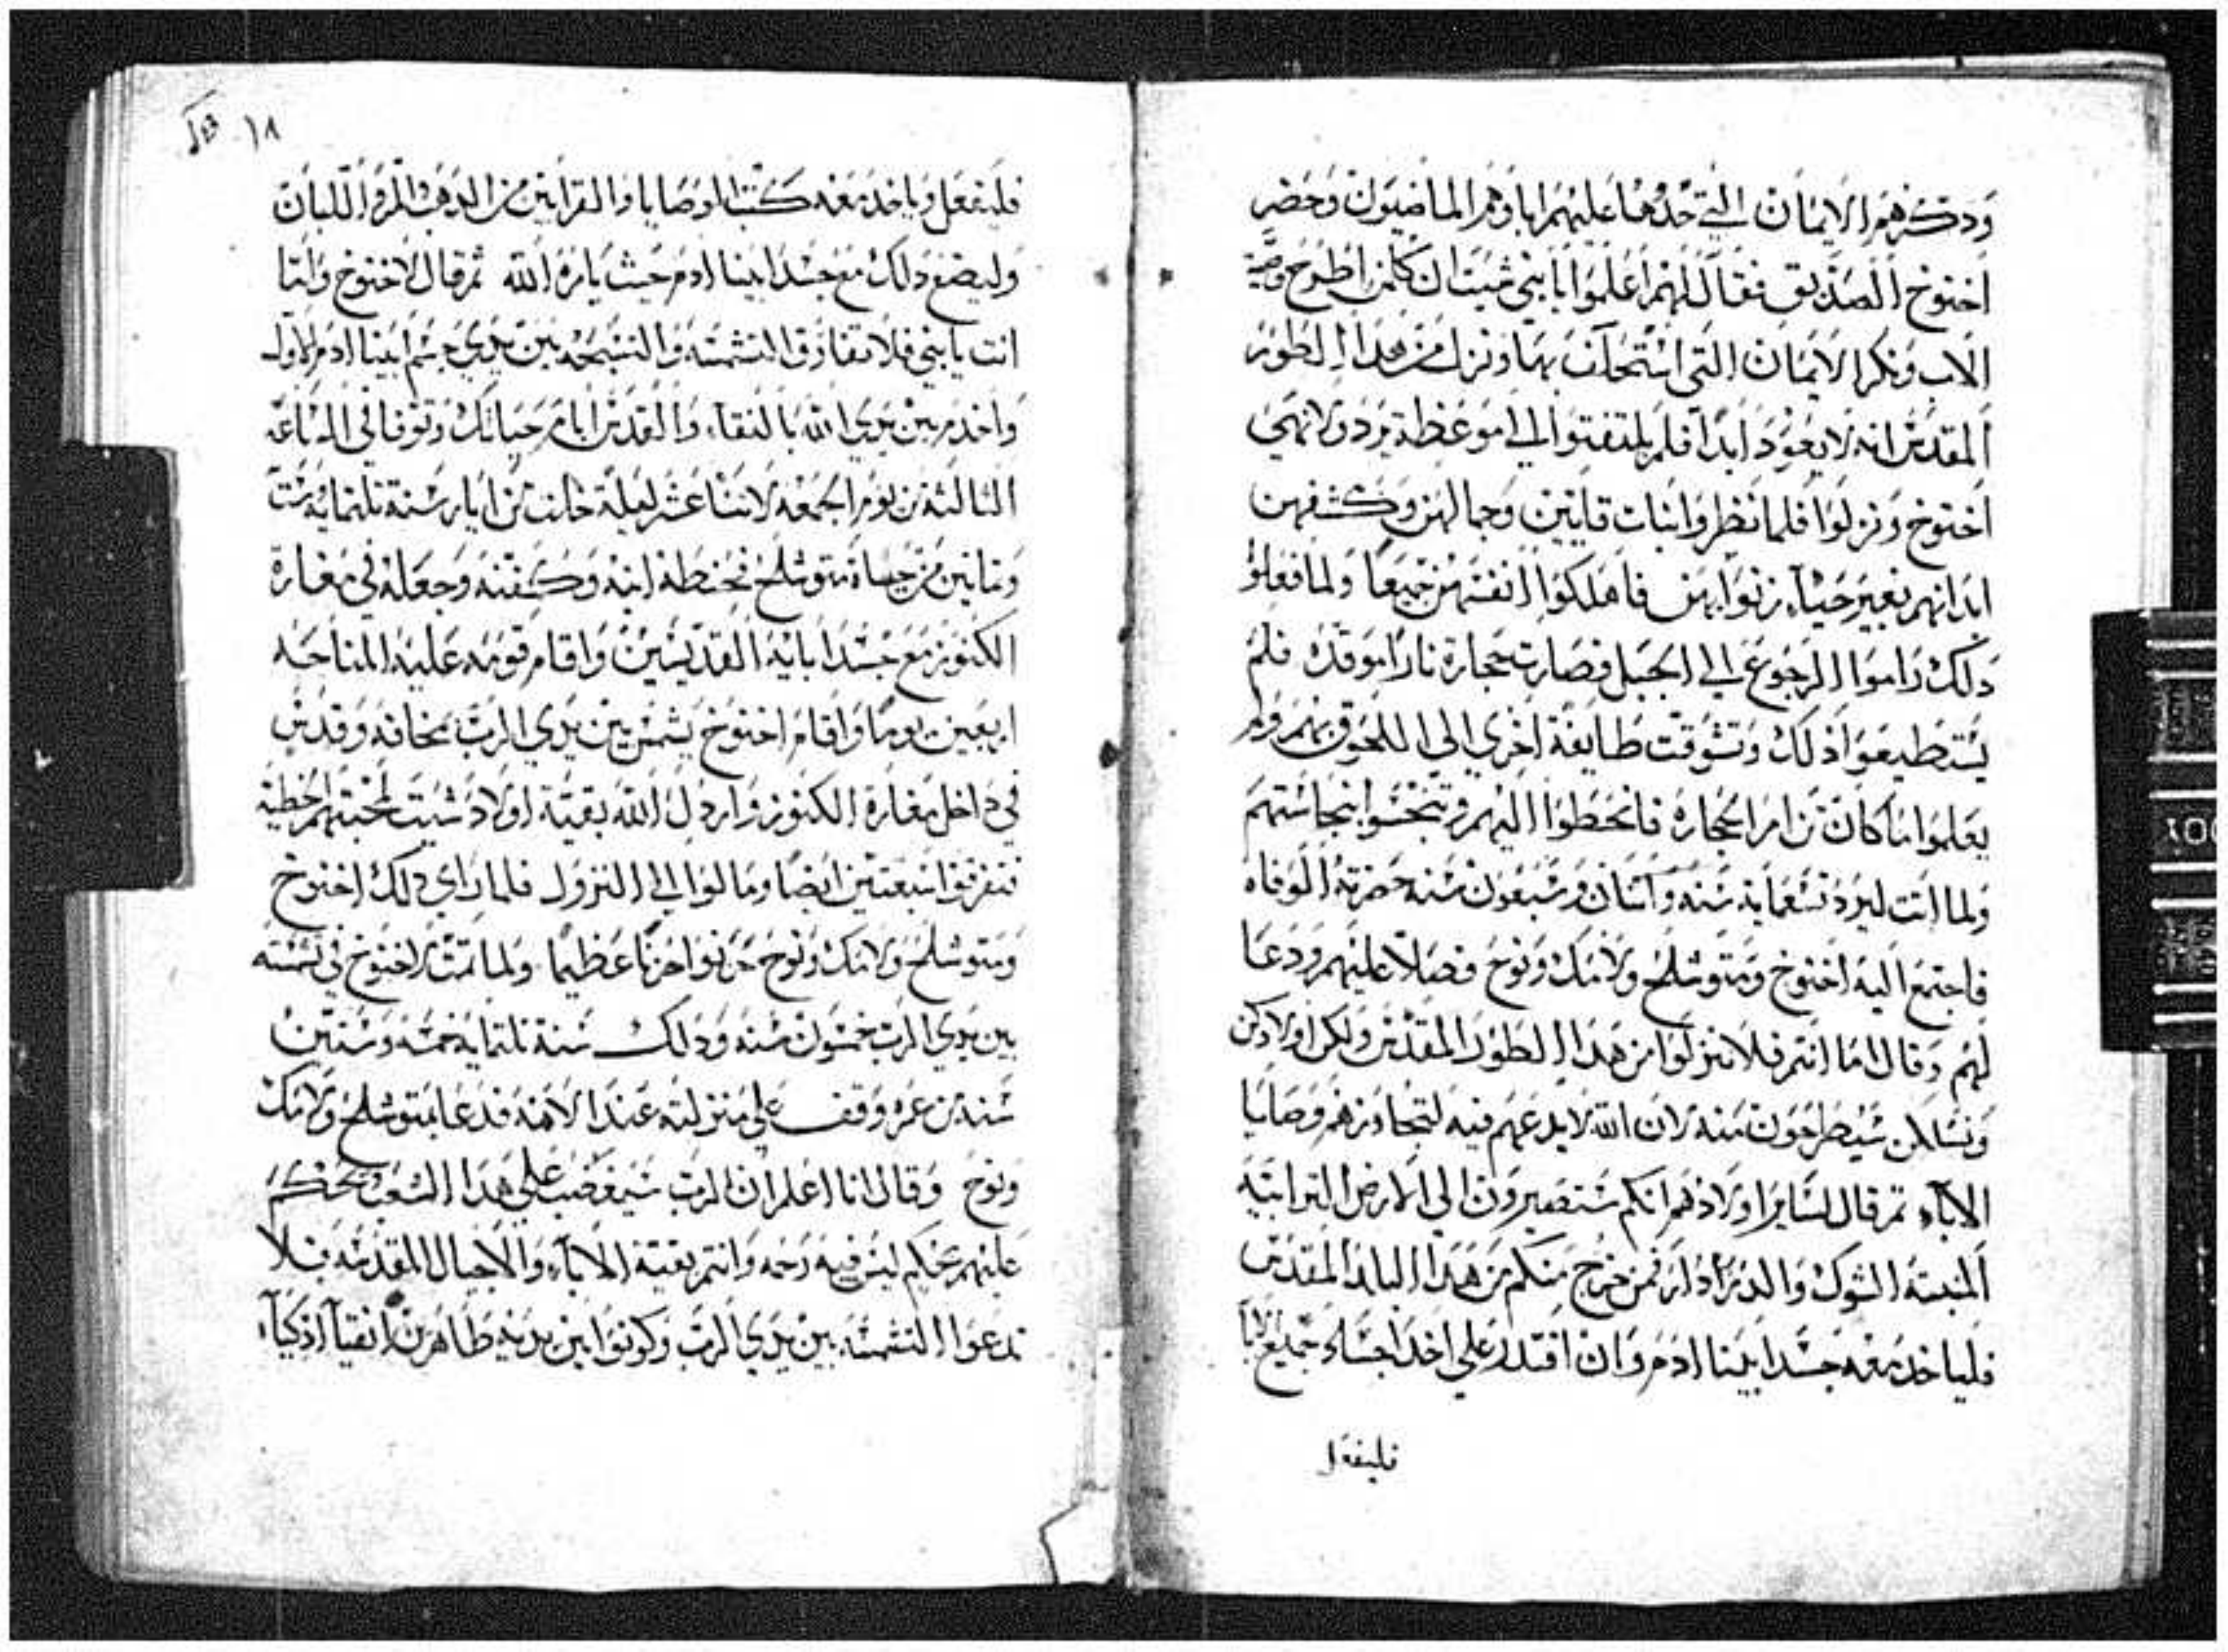 ودكرهم الايمان التي حدها عليهم اباوهم الماضيون وحضر
اخنوخ الصديق فقال لهم اعلموا يا بني شيت ان كلمن اطرح وصية
الاب ونكر الايمان التي استحلف بها ونزل من هدا الطور
المقدس انه لا يعود ابدا فلم يلتفتوا الي موعظة يرد ولا نهي
اخنوخ ونزلوا فلما نظروا بنات قايين وجمالهن وكشفهن
ابدانهم بغير حياء زنوا بهن فاهلكوا انفسهن جميعا ولما فعلوا
دلك راموا الرجوع الي الجبل فصارت حجارة نارا موقده فلم
يستطيعوا دلك وتشوقت طايفة اخري الي اللحوق بهم ولم
يعلموا ما كان من امر الحجاره فانحطوا اليهم وتنجسوا بنجاستهم
ولما اتت ليرد تسعماية سنه واتنان وستون سنه حضرته الوفاه
فاجتمع اليه اخنوخ ومتوشلح ولامك ونوح فصلا عليهم ودعا
لهم وقال اما انتم فلا تنزلوا من هدا الطور المقدس ولكن اولادكن
ونسلكن سيطرحون منه لان الله لا يدعهم فيه لتجاوزهم وصايا
الاباء تم قال لساير اولادهم انكم ستصيرون الي الارض الترابية
المنبته الشوك والدردار فمن خرج منكم من هدا البلد المقدس
فلياخد معه جسد ابينا ادم وان اقتدر علي اخد اجساد جميع الابا
فليفعل
١٨
فليفعل وياخد معه كتب الوصايا والقرابين من الدهب والمر واللبان
وليضع دلك مع جسد ابينا ادم حيث يامره الله ثم قال لاخنوخ واما
انت يا بني فلا تفارق التشمسه والتسبحه بين يدي جسم ابينا ادم الاول
واخدم بين يدي الله بالنقاء والقدس ايام حياتك وتوفا في الساعه
التالته من يوم الجمعه لاتنا عشر ليلة خلت من ايار سنة تلتمايه ست
وتمانين من حياة متوشلح فحنطه ابنه وكفنه وجعله في مغارة
الكنوز مع جسد ابايه القديسين واقام قومه عليه المناحه
اربعين يوما واقام اخنوخ يشمس بين يدي الرب بمخافه وقدس
في داخل مغارة الكنوز واردل الله بقية اولاد شيت لمحبتهم الخطيه
فتفرقوا شبعتين ايضا ومالوا الي النزول فلما راي دلك اخنوخ
ومتوشلح ولامك ونوح حزنوا حزنا عظيما ولما تمت لاخنوخ في تشمسته
بين يدي الرب خمسون سنه ودلك سنة تلتمايه خمسه وستين
سنه من عمره وقف علي منزلته عند الاهه فدعا بمتوشلح ولامك
ونوح وقال انا اعلم ان الرب سيغضب علي هدا الشعب ويحكم
عليهم بحكم ليس فيه رحمه وانتم بقية الاباء والاجيال المقدسه فلا
تدعوا التشمسه بين يدي الرب وكونوا بين يديه طاهرين انقياء ازكياء